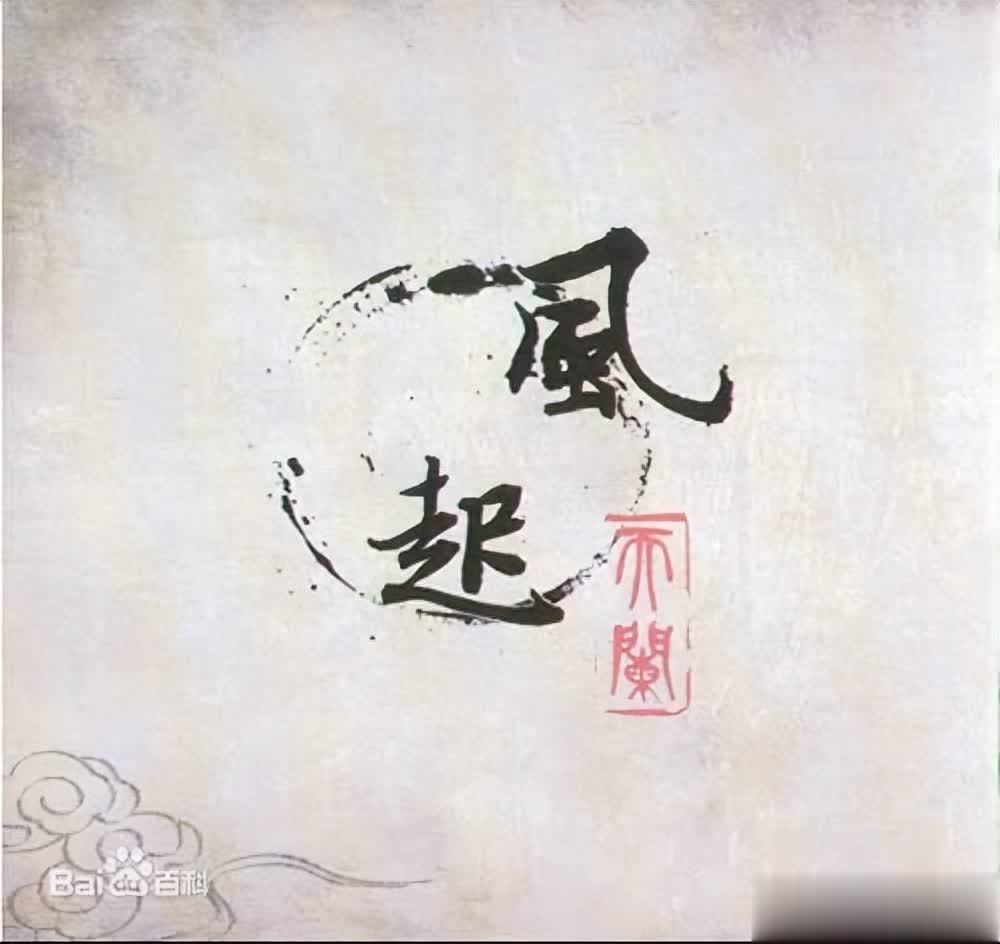 風
起
天闌
Bai du 百科